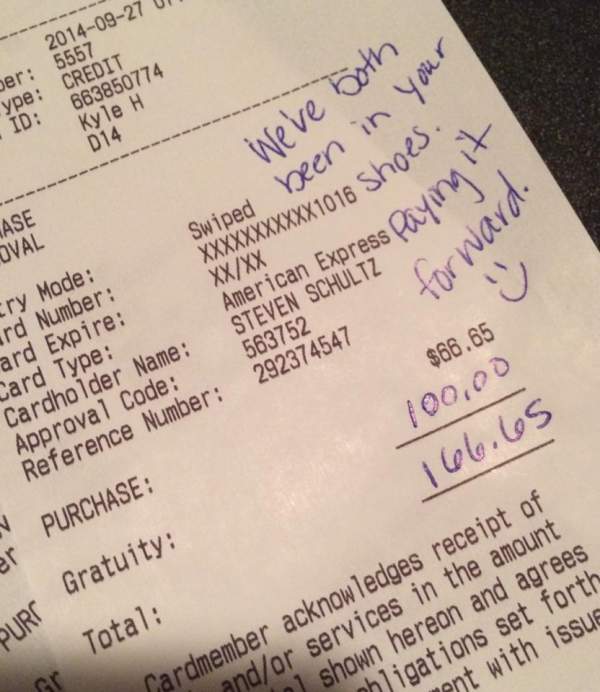 2014-09-27
ber: 5557
ype: CREDIT
ID: 663850774
Kyle H
D14
We've both
been in your
shoes.
Paying it
forward.
HASE
OVAL
try Mode: Swiped
rd Number: XXXXXXXXXXX1016
ard Expire: XX/XX
Card Type: American Express
Cardholder Name: STEVEN SCHULTZ
Approval Code: 563752
Reference Number: 292374547
PURCHASE: $66.65
Gratuity: 100.00
Total: 166.65
Cardmember acknowledges receipt of
and/or services in the amount
shown hereon and agrees
obligations set forth
ent with issue
PURC
Gr